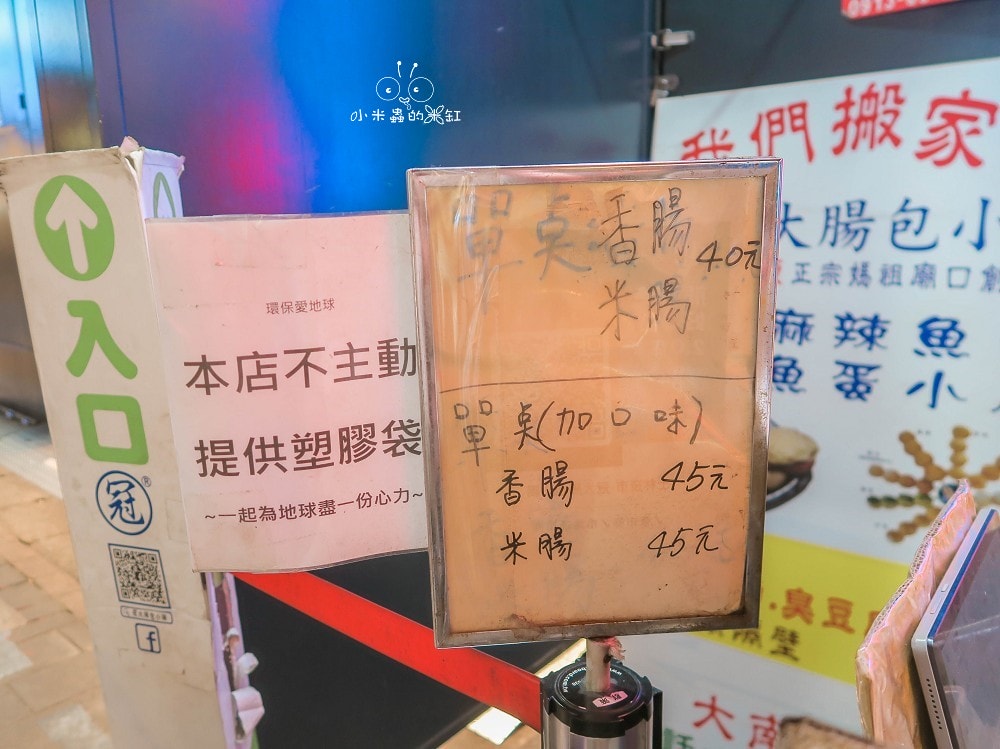 小米蟲的米缸
入口
冠
環保愛地球
本店不主動
提供塑膠袋
~一起為地球盡一份心力~
單桌香腸 40元
米腸
單桌(加口味)
香腸 45元
米腸 45元
我們搬家
大腸包小
正宗媽祖廟口創
麻辣魚
魚蛋小
臭豆
隔壁
大南